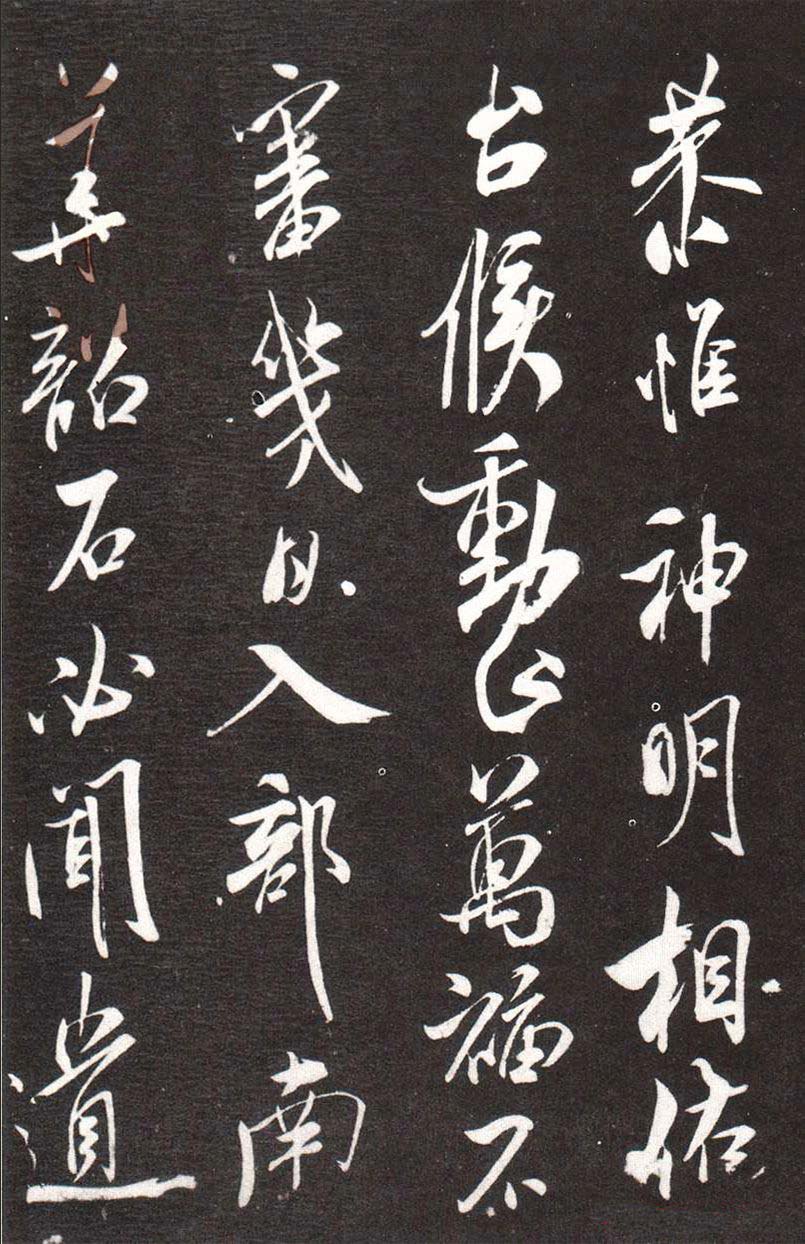 恭惟神明相佑
台候動止萬福不
審幾日入部南
華韶石必聞遺